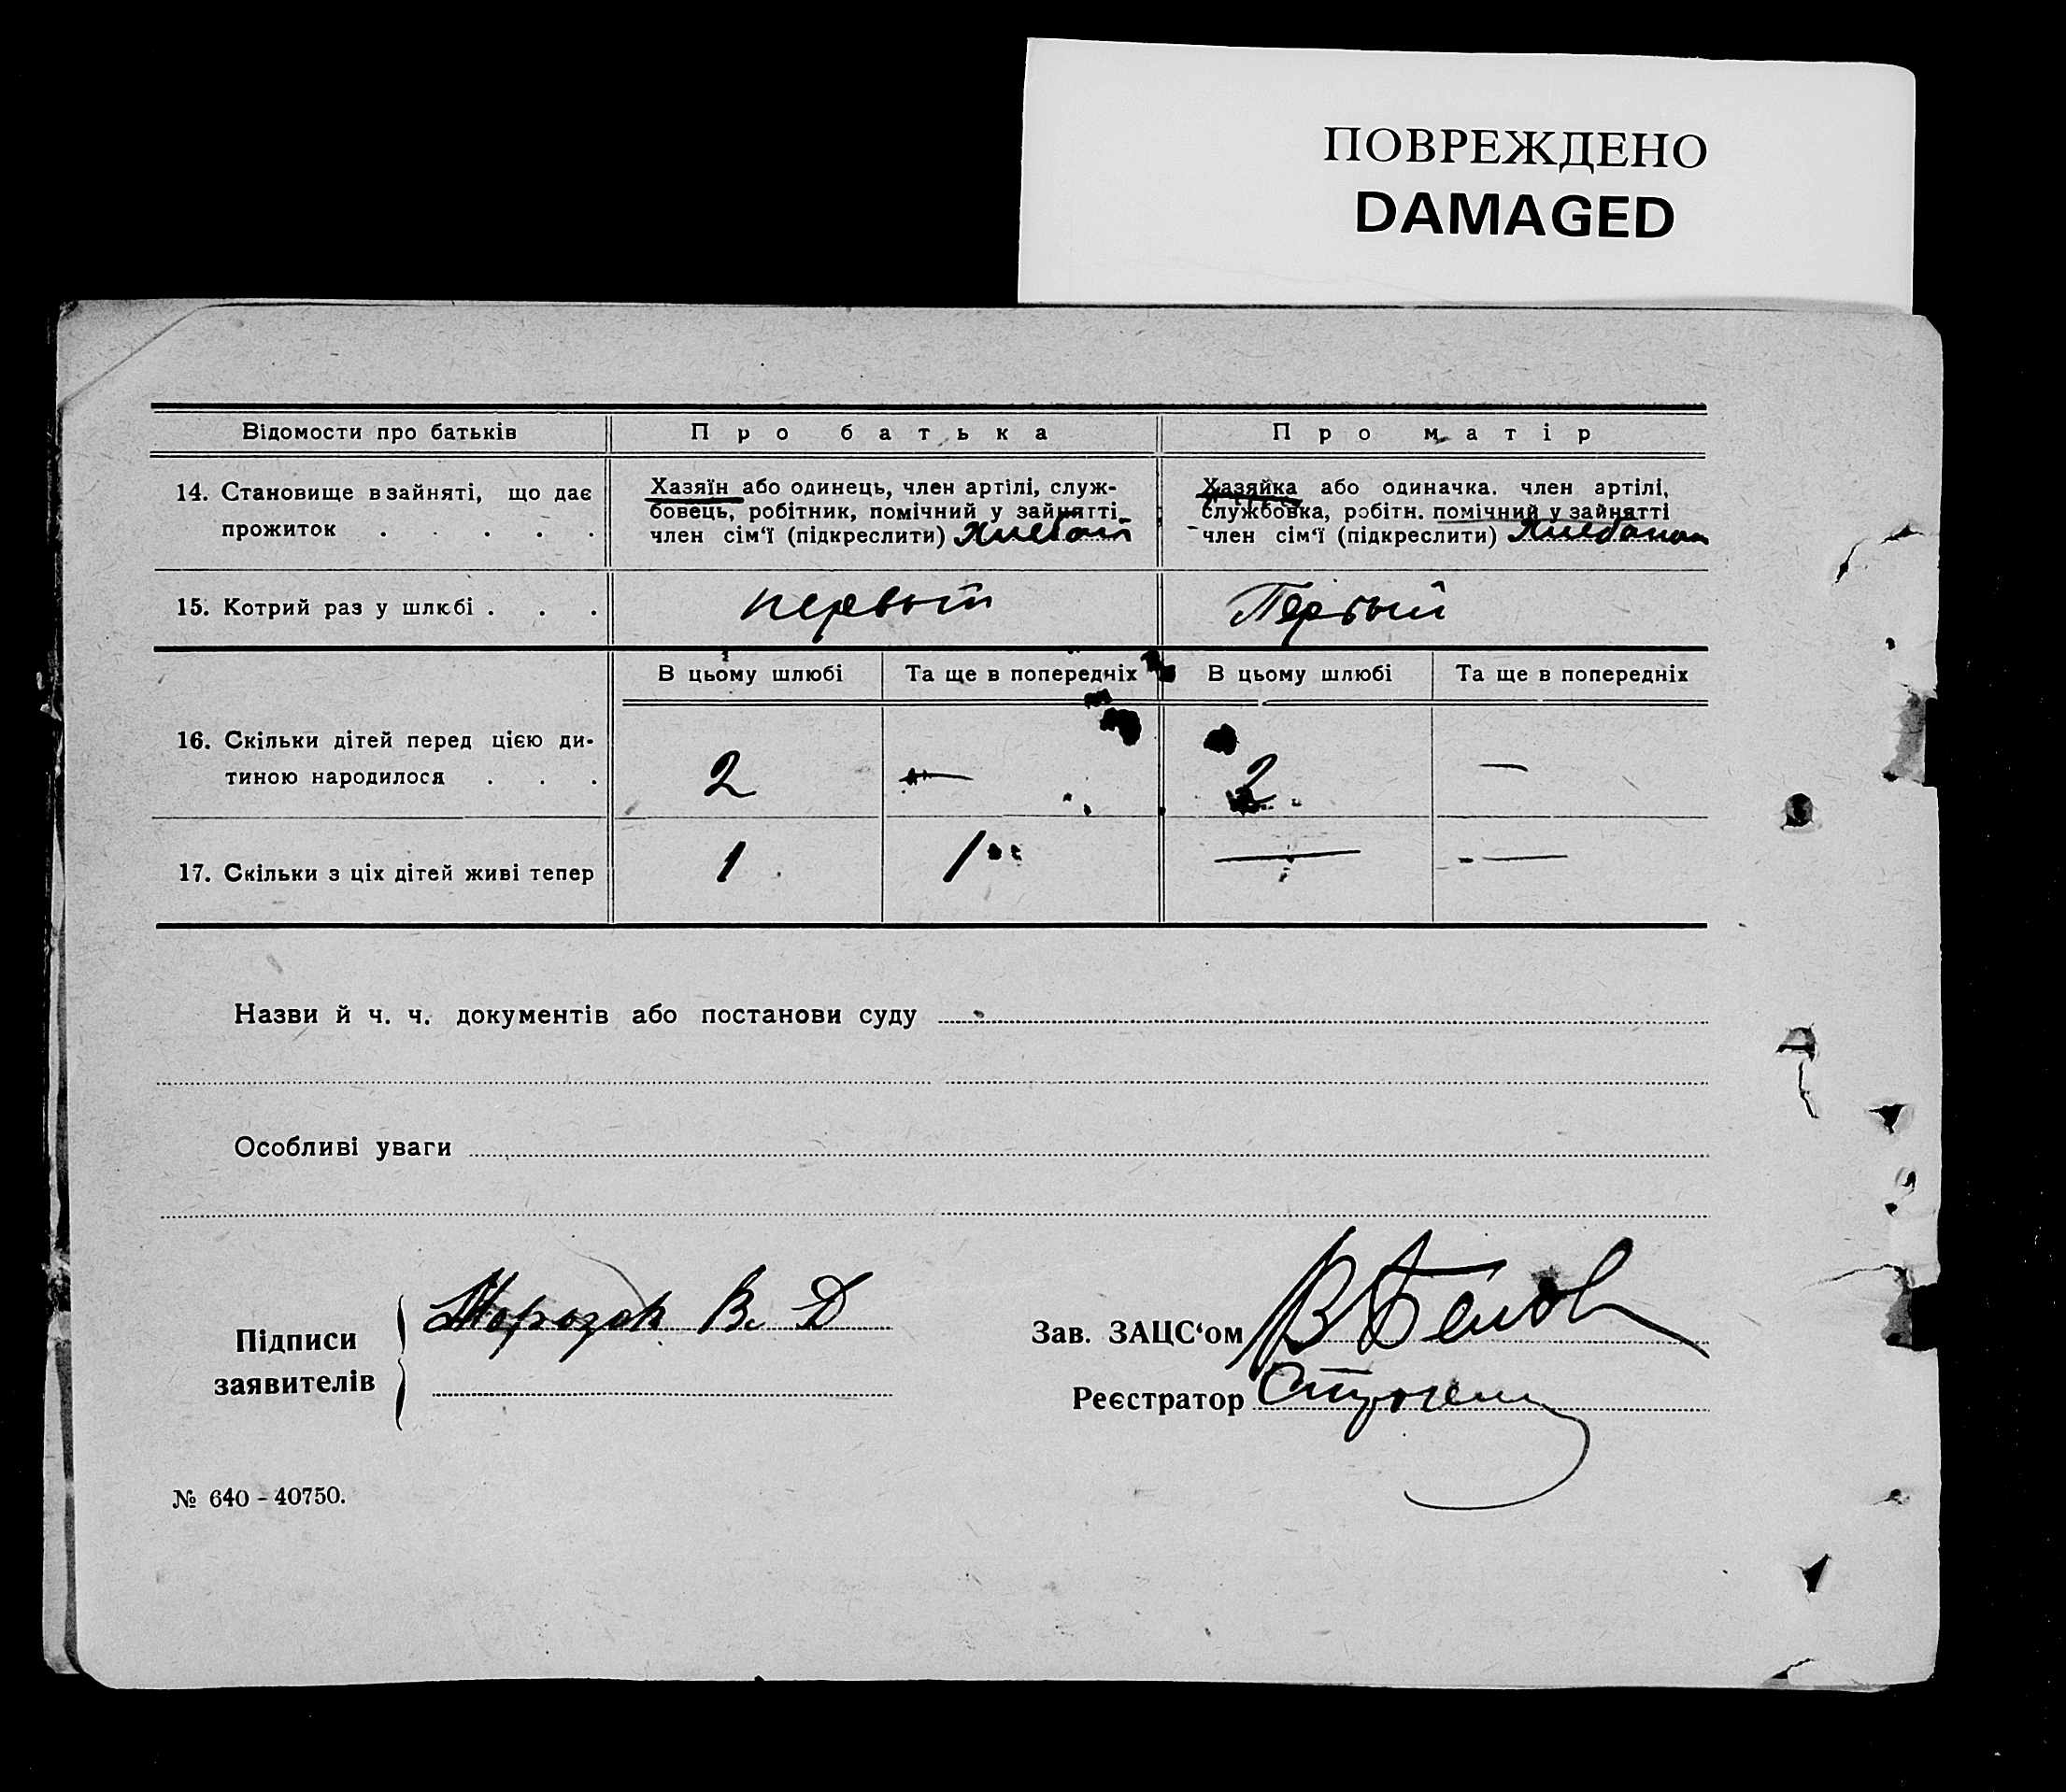 ПОВРЕЖДЕНО
DAMAGED
Відомости про батьків
Про батька
Про матір
14. Становище в зайняті, що дає
прожиток . . . . .
Хазяїн або одинець, член артілі, служ-
бовець, робітник, помічний у зайнятті
член сім‘ї (підкреслити)
Хазяйка або одиначка. член артілі,
службовка, робітн. помічний у зайнятті
член сім‘ї (підкреслити)
15. Котрий раз у шлюбі . . .
первый
Первый
В цьому шлюбі
Та ще в попередніх
В цьому шлюбі
Та ще в попередніх
16. Скільки дітей перед цією ди-
тиною народилося . . .
2
—
2
—
17. Скільки з ціх дітей живі тепер
1
1
—
—
Назви й ч. ч. документів або постанови суду
Особливі уваги
Підписи
заявителів
Морозок В. Д
Зав. ЗАЦС‘ом
Реєстратор
№ 640 - 40750.